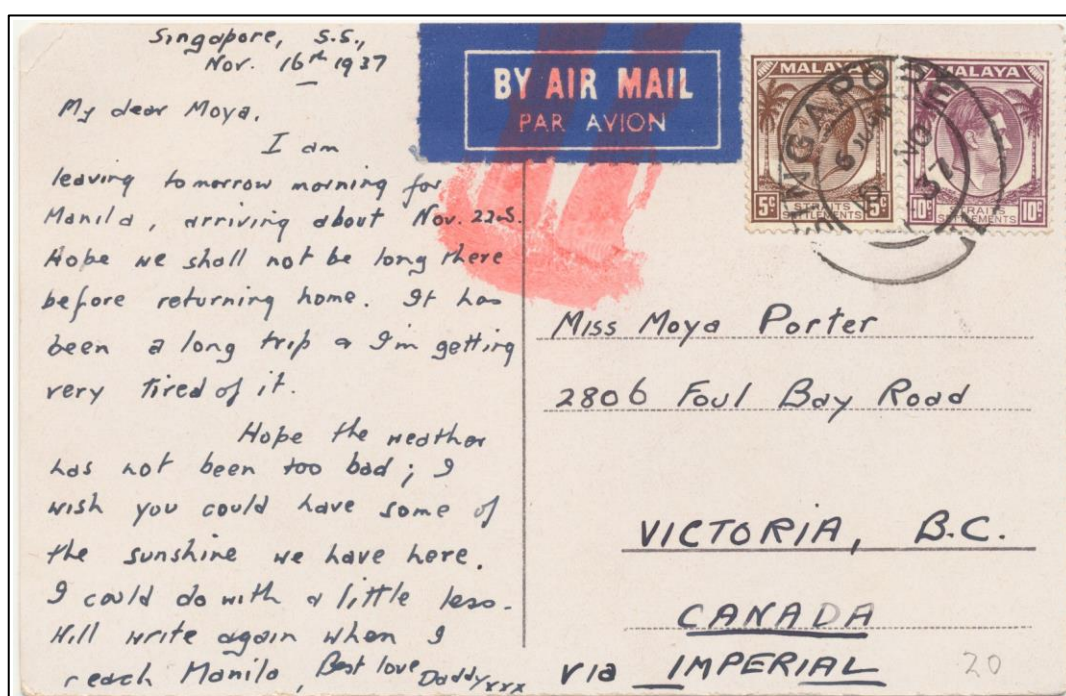 Singapore, S.S.,
Nov. 16th 1937
My dear Moya,
I am
leaving tomorrow morning for
Manila, arriving about Nov. 22nd.
Hope we shall not be long there
before returning home. It has
been a long trip & I'm getting
very tired of it.
Hope the weather
has not been too bad; I
wish you could have some of
the sunshine we have here.
I could do with a little less.
Will write again when I
reach Manila, Best love Daddy xxx
BY AIR MAIL
PAR AVION
MALAYA
5c STRAITS SETTLEMENTS 5c
MALAYA
10c STRAITS SETTLEMENTS 10c
SINGAPORE
NO
37
Miss Moya Porter
2806 Foul Bay Road
VICTORIA, B.C.
CANADA
via IMPERIAL
20